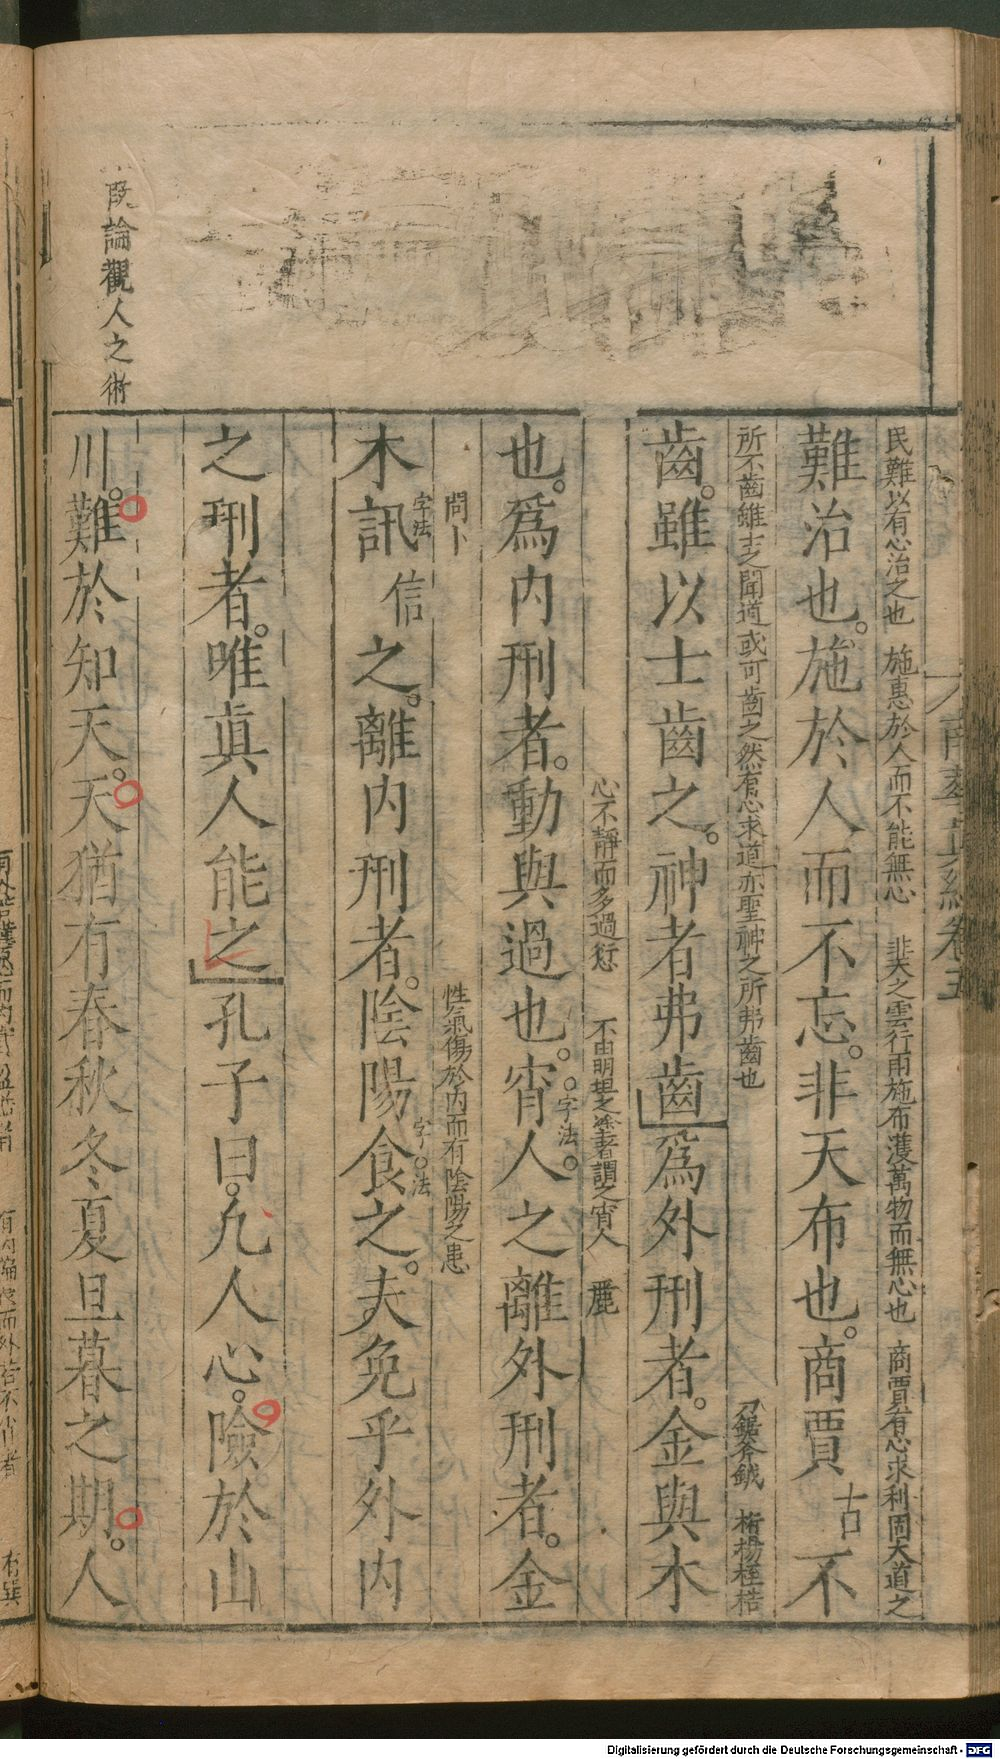 民難以有心治之也　施惠於人而不能無心　非天之雲行雨施布濩萬物而無心也　商賈有心求利固大道之
難治也。施於人而不忘。非天布也。商賈古不
所不齒雖士之聞道或可齒之然有心求道亦聖神之所弗齒也　刀鋸斧鉞　桁楊桎梏
齒。雖以士齒之。神者弗齒爲外刑者。金與木
心不靜而多過愆　不由明坦之塗者謂之宵人　麗
也。爲內刑者。動與過也。宵字法人。之離外刑者。金
問卜　性氣傷於內而有陰陽之患
木訊字法信之。離內刑者。陰陽食字法之。夫免乎外內
之刑者。唯眞人能之孔子曰。凡人心。險於山
既論觀人之術
川。難於知天。天猶有春秋冬夏旦暮之期。人
Digitalisierung gefördert durch die Deutsche Forschungsgemeinschaft - DFG